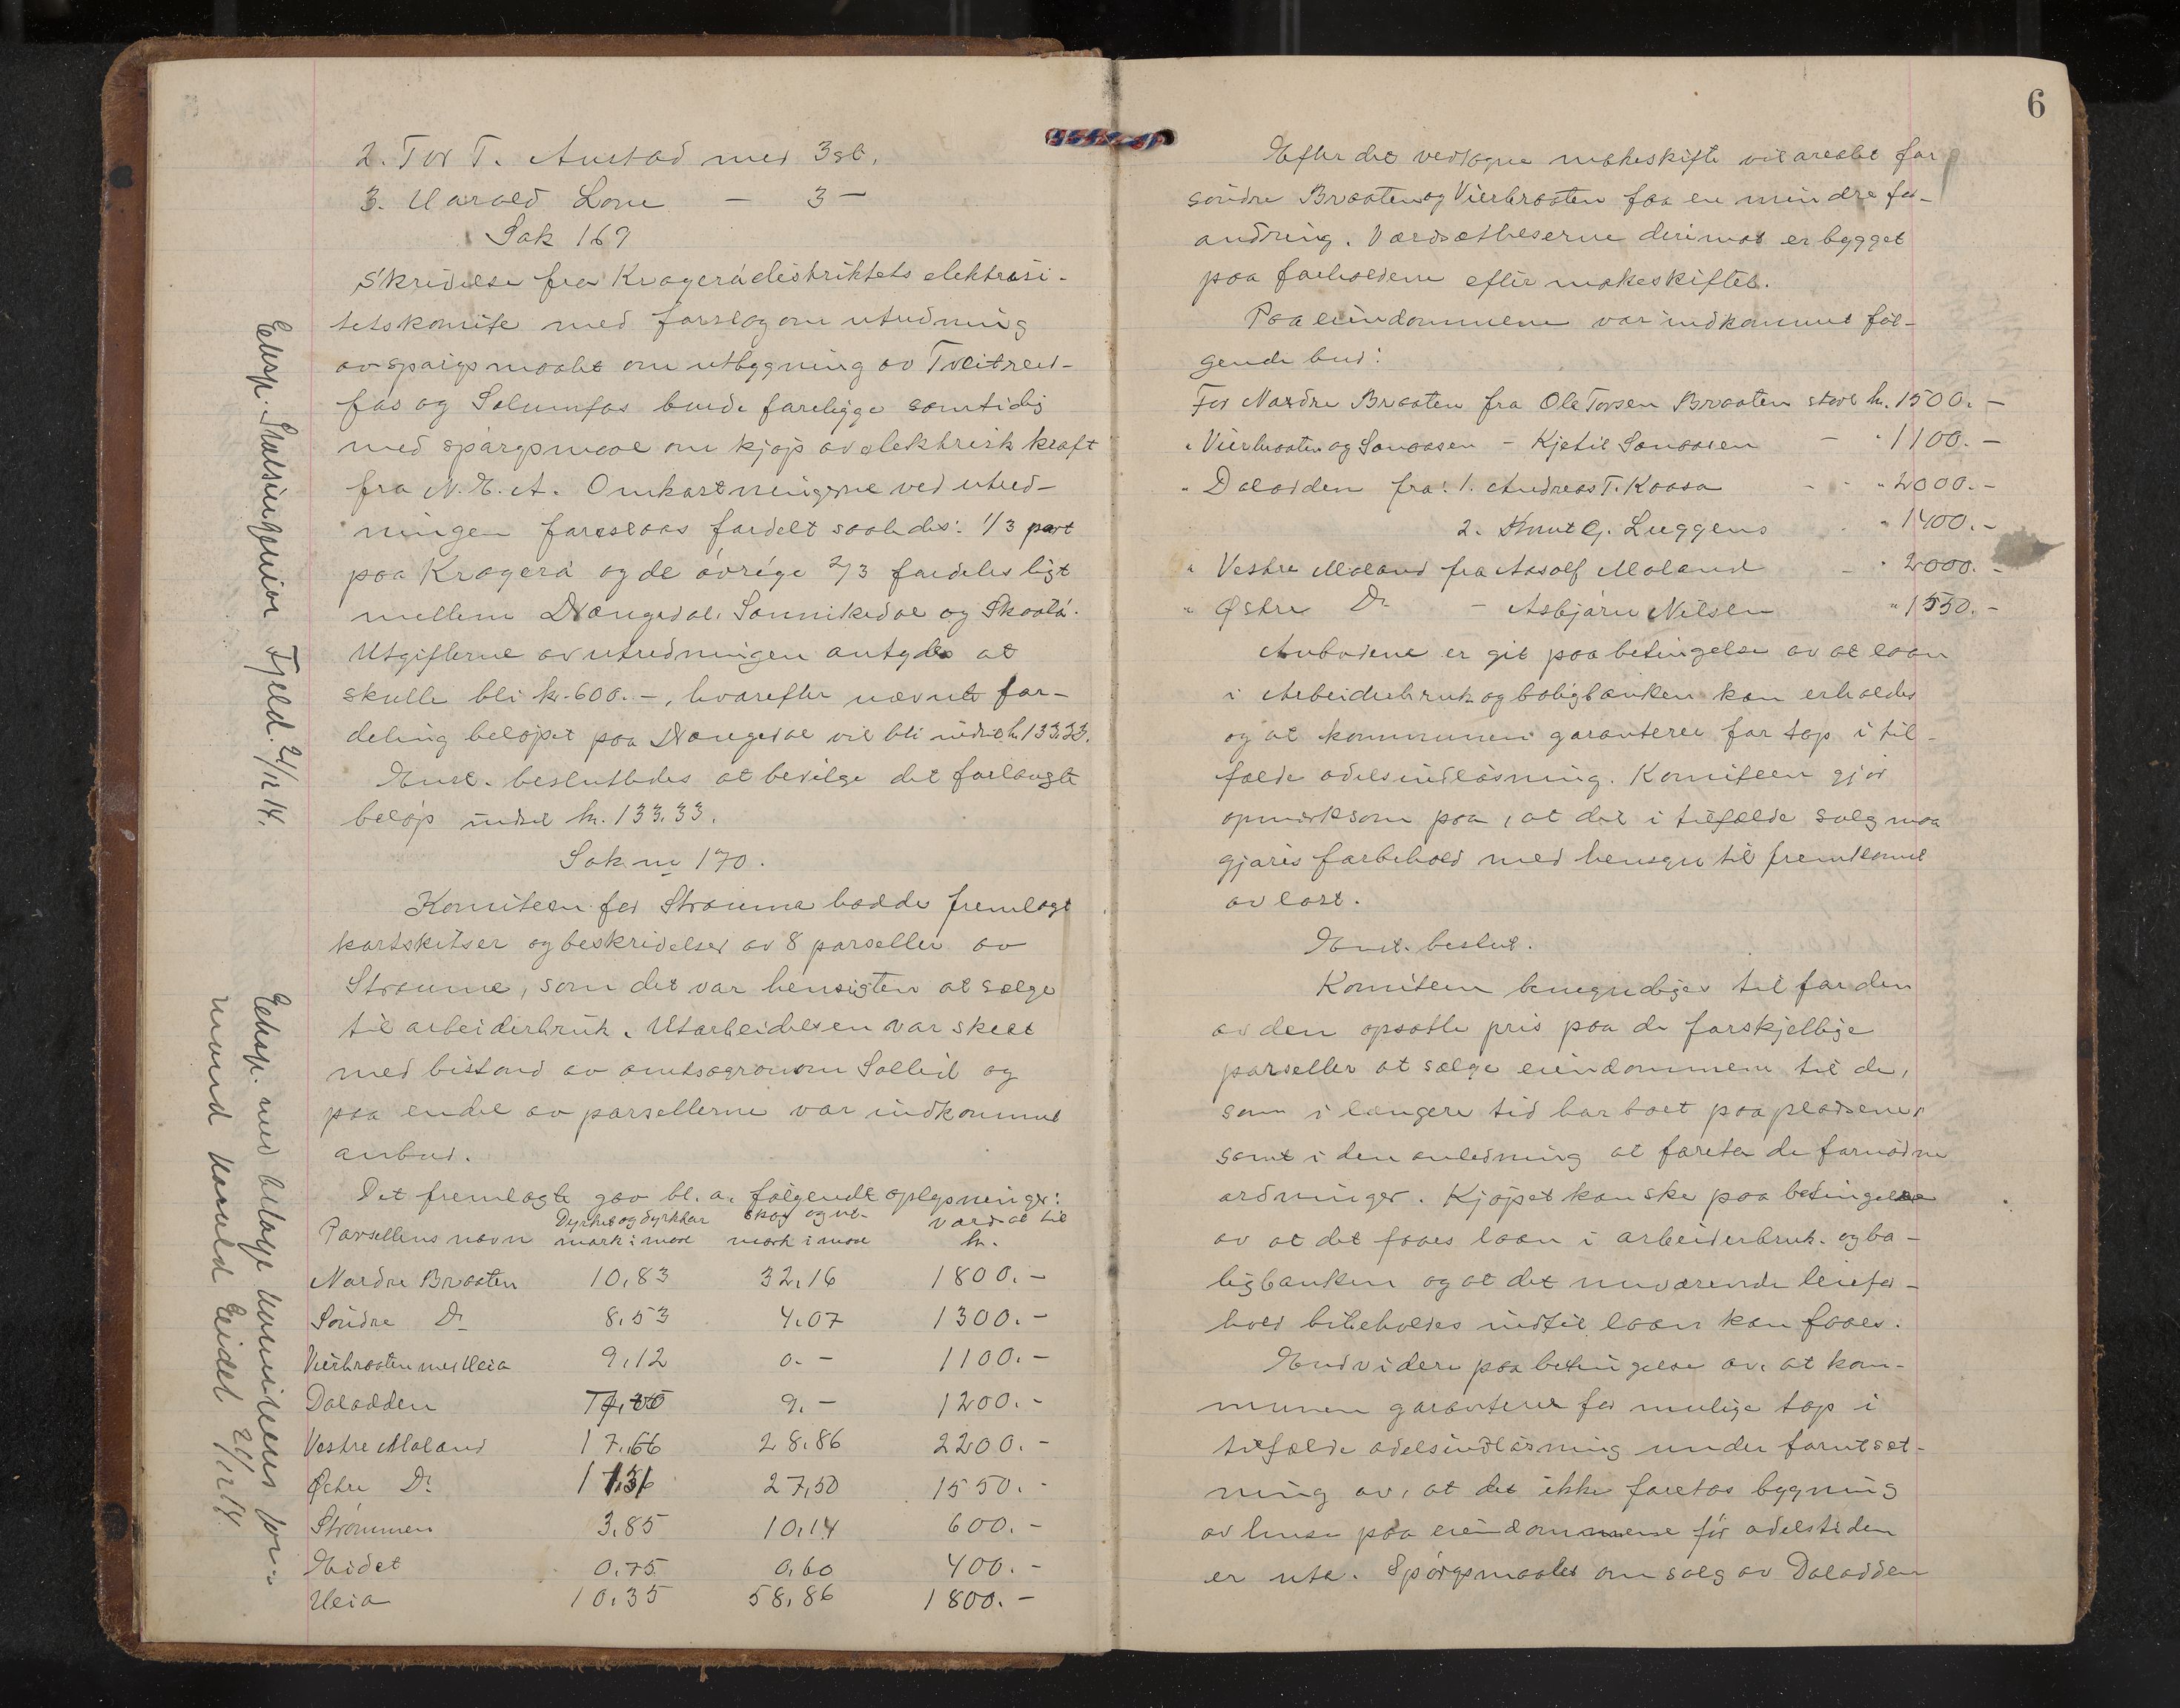 2. Tor T. Austad med 3 st.
3. Harald Lone — 3 —
Sak 169
Skrivelse fra Kragerødistriktets elektrisi-
tetskomite med forslag om utredning
av spørgsmaalet om utbygning av Tveitreid-
fos og Solumfos burde foreligge samtidig
med spørgsmaal om kjøp av elektrisk kraft
fra N. E. A. Omkostningerne ved utred-
ningen foreslaaes fordelt saaledes: 1/3 part
paa Kragerø og de øvrige 2/3 fordeles ligt
mellem Drangedal, Sannikedal og Skaatø.
Utgifterne av utredningen antydes at
skulle bli kr. 600.-, hvorefter nævnte for-
deling beløpet paa Drangedal vil bli indtil kr. 133.33.
Enst. besluttedes at bevilge det forlangte
beløp indtil kr. 133.33.
Sak nr 170.
Komiteen for Straume hadde fremlagt
kartskitser og beskrivelser av 8 parseller av
Straume, som det var hensigten at sælge
til arbeiderbruk. Utarbeidelsen var skeet
med bistand av amtsagronom Solleid og
paa endel av parsellerne var indkommet
anbud.
Det fremlagte gav bl. a. følgende oplysninger:
Parsellens navn Dyrket og dyrkbar mark i maal Skog og ut- mark i maal Værdsat til kr.
Nordre Braaten 10,83 32,16 1800.-
Söndre Do 8,53 4,07 1300.-
Vierbraaten med Heia 9,12 0.- 1100.-
Dalodden 9.- 1200.-
Vestre Moland 17,66 28,86 2200.-
Østre Do 27,50 1550.-
Strømmen 3,85 10,14 600.-
Eidet 0,75 0,60 400.-
Heia 10,35 58,86 1800.-
Eksp. Statsingeniør Fjeld. 21/12 14.
Eksp. med bilage komiteens for-
mand Harald Eidet 21/12 14.
6
Efter det vedtagne makeskifte vil arealet for
söndre Braaten og Vierbraaten faa en mindre for-
andring. Værdsættelserne derimot er bygget
paa forholdene efter makeskiftet.
Paa eiendommene var indkommet føl-
gende bud:
For Nordre Braaten fra Ole Torsen Braaten stort kr. 1500.-
" Vierbraaten og Sanaasen - Kjetil Sanaasen - " 1100.-
" Dalodden fra: 1. Andreas T. Kaasa - - " 2000.-
2. Knut G. Luggens " 1400.-
" Vestre Moland fra Aasolf Moland - " 2000.-
" Østre Do - Asbjørn Nilsen " 1550.-
Anbudene er git paa betingelse av at laan
i Arbeiderbruk og boligbanken kan erholdes
og at kommunen garanterer for tap i til-
fælde odelsindløsning. Komiteen gjør
opmerksom paa, at det i tilfælde salg maa
gjøres forbehold med hensyn til fremkomst
av last.
Enst. beslut.
Komiteen bemyndiges til for den
av den opsatte pris paa de forskjellige
parseller at sælge eiendommene til de,
som i længere tid har boet paa pladsene,
samt i den anledning at foreta de fornødne
ordninger. Kjøpet kan ske paa betingelse
av at det faaes laan i arbeiderbruk- og bo-
ligbanken og at det nuværende leiefor-
hold bibeholdes indtil laan kan faaes.
Endvidere paa betingelse av, at kom-
munen garanterer for mulige tap i
tilfælde odelsindløsning under forutset-
ning av, at det ikke foretas bygning
av huse paa eiendommene før odelstiden
er ute. Spørgsmaalet om salg av Dalodden